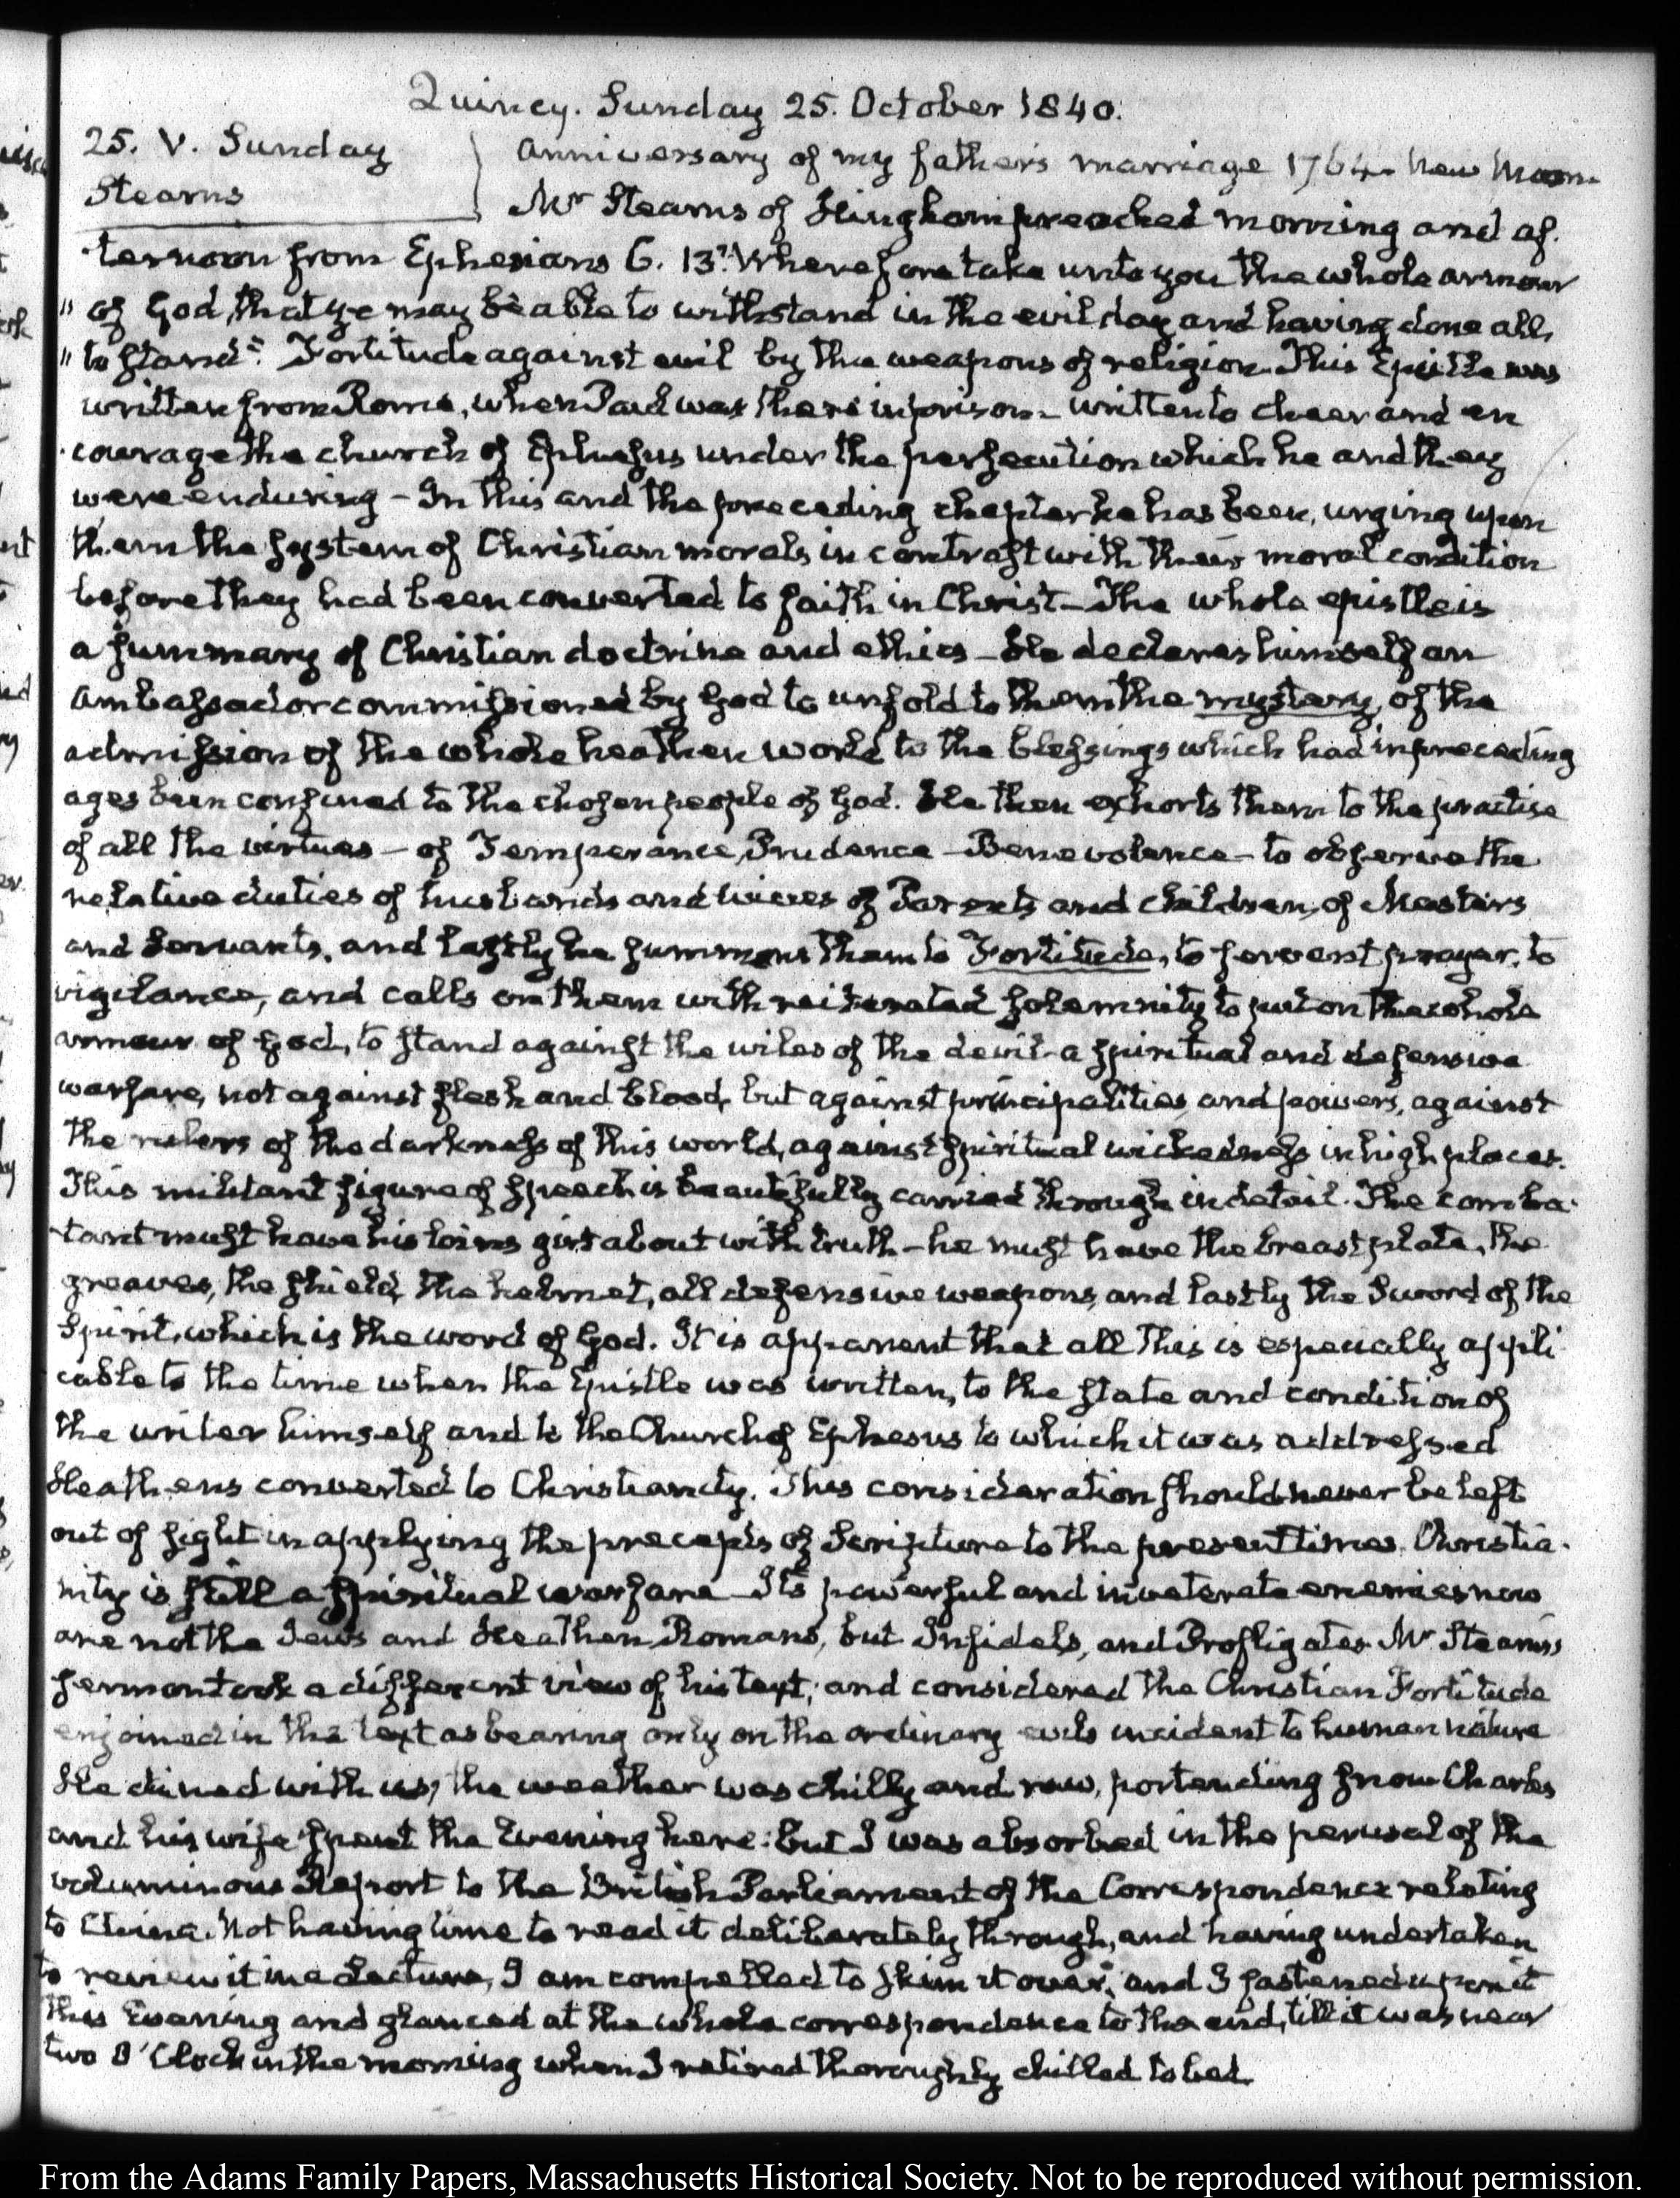 Quincy. Sunday 25. October 1840.
25. V. Sunday
Stearns
Anniversary of my father's marriage 1764. New Moon.
Mr Stearns of Hingham preached morning and af-
ternoon from Ephesians 6. 13. "Wherefore take unto you the whole armour
" of God, that ye may be able to withstand in the evil day and having done all,
" to stand". Fortitude against evil by the weapons of religion. This Epistle was
written from Rome, when Paul was there in prison — written to cheer and en
courage the church of Ephesus under the persecution which he and they
were enduring — In this and the preceding chapter he has been, urging upon
them the system of Christian morals in contrast with their moral condition
before they had been converted to faith in Christ — The whole epistle is
a summary of Christian doctrine and ethics — He declares himself an
Ambassador commissioned by God to unfold to them the mystery, of the
admission of the whole heathen world to the blessings which had in preceding
ages been confined to the chosen people of God. He then exhorts them to the practise
of all the virtues — of Temperance, Prudence — Benevolence — to observe the
relative duties of husbands and wives of Parents and children, of Masters
and Servants, and lastly he summons them to Fortitude, to fervent prayer, to
vigilance, and calls on them with reiterated solemnity to put on the whole
armour of God, to stand against the wiles of the devil — a spiritual and defensive
warfare, not against flesh and blood, but against principalities, and powers, against
the rulers of the darkness of this world, against spiritual wickedness in high places.
This militant figure of speech is beautifully carried through in detail. The comba-
tant must have his loins girt about with truth — he must have the breastplate, the
greaves, the shield, the helmet, all defensive weapons, and lastly the Sword of the
Spirit, which is the word of God. It is apparent that all this is especially appli
cable to the time when the Epistle was written, to the state and condition of
the writer himself and to the Church of Ephesus to which it was addressed
Heathens converted to Christianity. This consideration should never be left
out of sight in applying the precepts of Scripture to the present times. Christia-
nity is still a spiritual warfare — Its powerful and inveterate enemies now
are not the Jews and Heathen Romans, but Infidels, and Profligates. Mr Stearns's
sermon took a different view of his text; and considered the Christian Fortitude
enjoined in the text as bearing only on the ordinary evils incident to human nature
He dined with us; the weather was chilly and raw, portending snow. Charles
and his wife spent the Evening here: but I was absorbed in the perusal of the
voluminous Report to the British Parliament of the Correspondence relating
to China. Not having time to read it deliberately through, and having undertaken
to review it in a Lecture, I am compelled to skim it over, and I fastened upon it
this Evening and glanced at the whole correspondence to the end, till it was near
two O'Clock in the morning when I retired thoroughly chilled to bed.
From the Adams Family Papers, Massachusetts Historical Society. Not to be reproduced without permission.